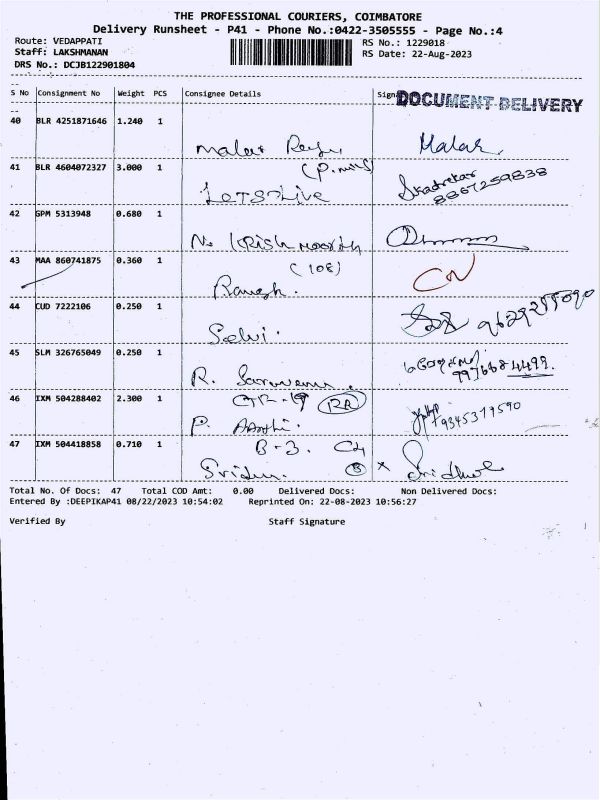 THE PROFESSIONAL COURIERS, COIMBATORE
Delivery Runsheet - P41 - Phone No.:0422-3505555 - Page No.:4
Route: VEDAPPATI
RS No.: 1229018
Staff: LAKSHMANAN
RS Date: 22-Aug-2023
DRS No.: DCJB122901804
S No Consignment No Weight PCS Consignee Details Sign
DOCUMENT DELIVERY
40 BLR 4251871646 1.240 1
Malar Malar
41 BLR 4604072327 3.000 1
8867259838
42 GPM 5313948 0.680 1
N.
43 MAA 860741875 0.360 1
(108)
CN
44 CUD 7222106 0.250 1
Selvi.
45 SLM 326765049 0.250 1
R.
46 IXM 504288402 2.300 1
RR
P.
9345379590
47 IXM 504418858 0.710 1
B-3.
Sridhar
Total No. Of Docs: 47 Total COD Amt: 0.00 Delivered Docs: Non Delivered Docs:
Entered By :DEEPIKAP41 08/22/2023 10:54:02 Reprinted On: 22-08-2023 10:56:27
Verified By Staff Signature